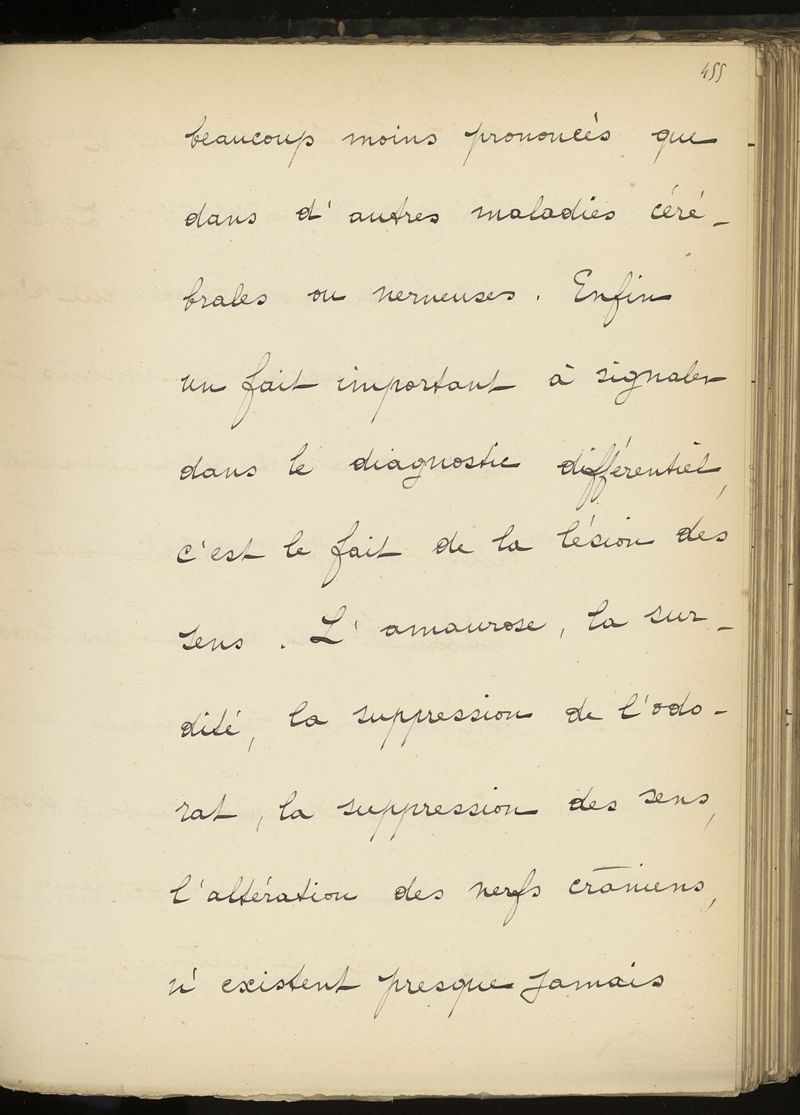 455
beaucoup moins prononcés que
dans d'autres maladies céré-
brales ou nerveuses. Enfin
un fait important à signaler
dans le diagnostic différentiel,
c'est le fait de la lésion des
sens. L'amaurose, la sur-
dité, la suppression de l'odo-
rat, la suppression des sens,
l'altération des nerfs crâniens,
n'existent presque jamais